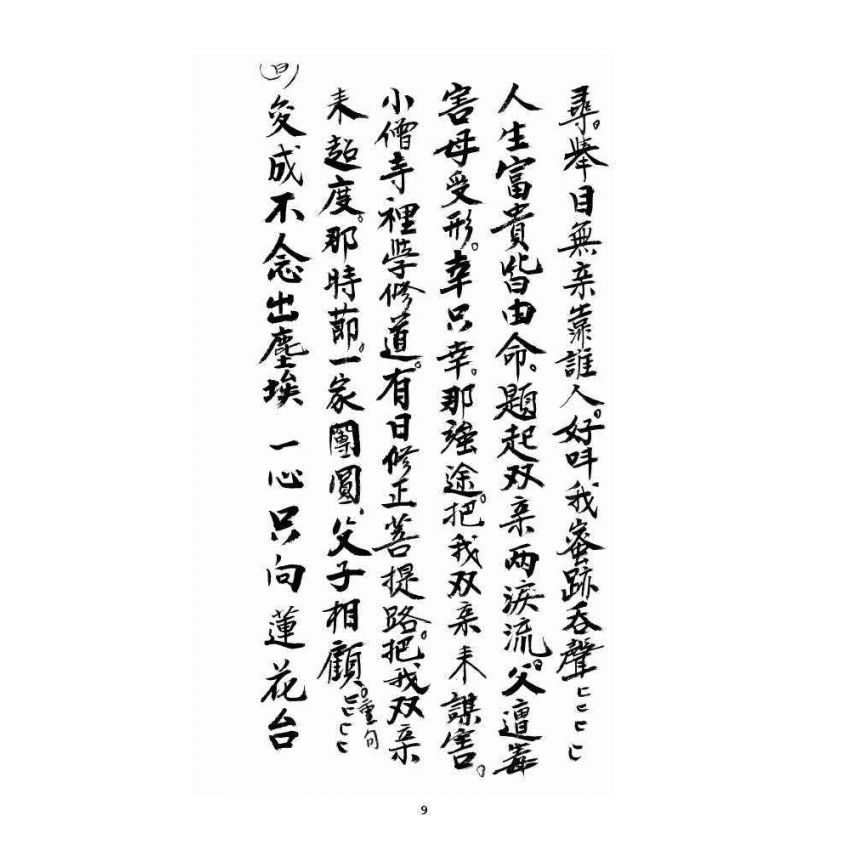 尋。舉目無亲靠誰人。好叫我蜜跡吞聲匕匕匕匕
人生富貴皆由命。題起双亲两淚流。父遭毒
害母受形。幸只幸。那強途。把我双亲来謀害。
小僧寺裡学修道。有日修正菩提路。把我双亲
来超度。那時節。一家團圓。父子相顧。匕匕匕匕重句
(白)变成不念出塵埃 一心只向蓮花台
9